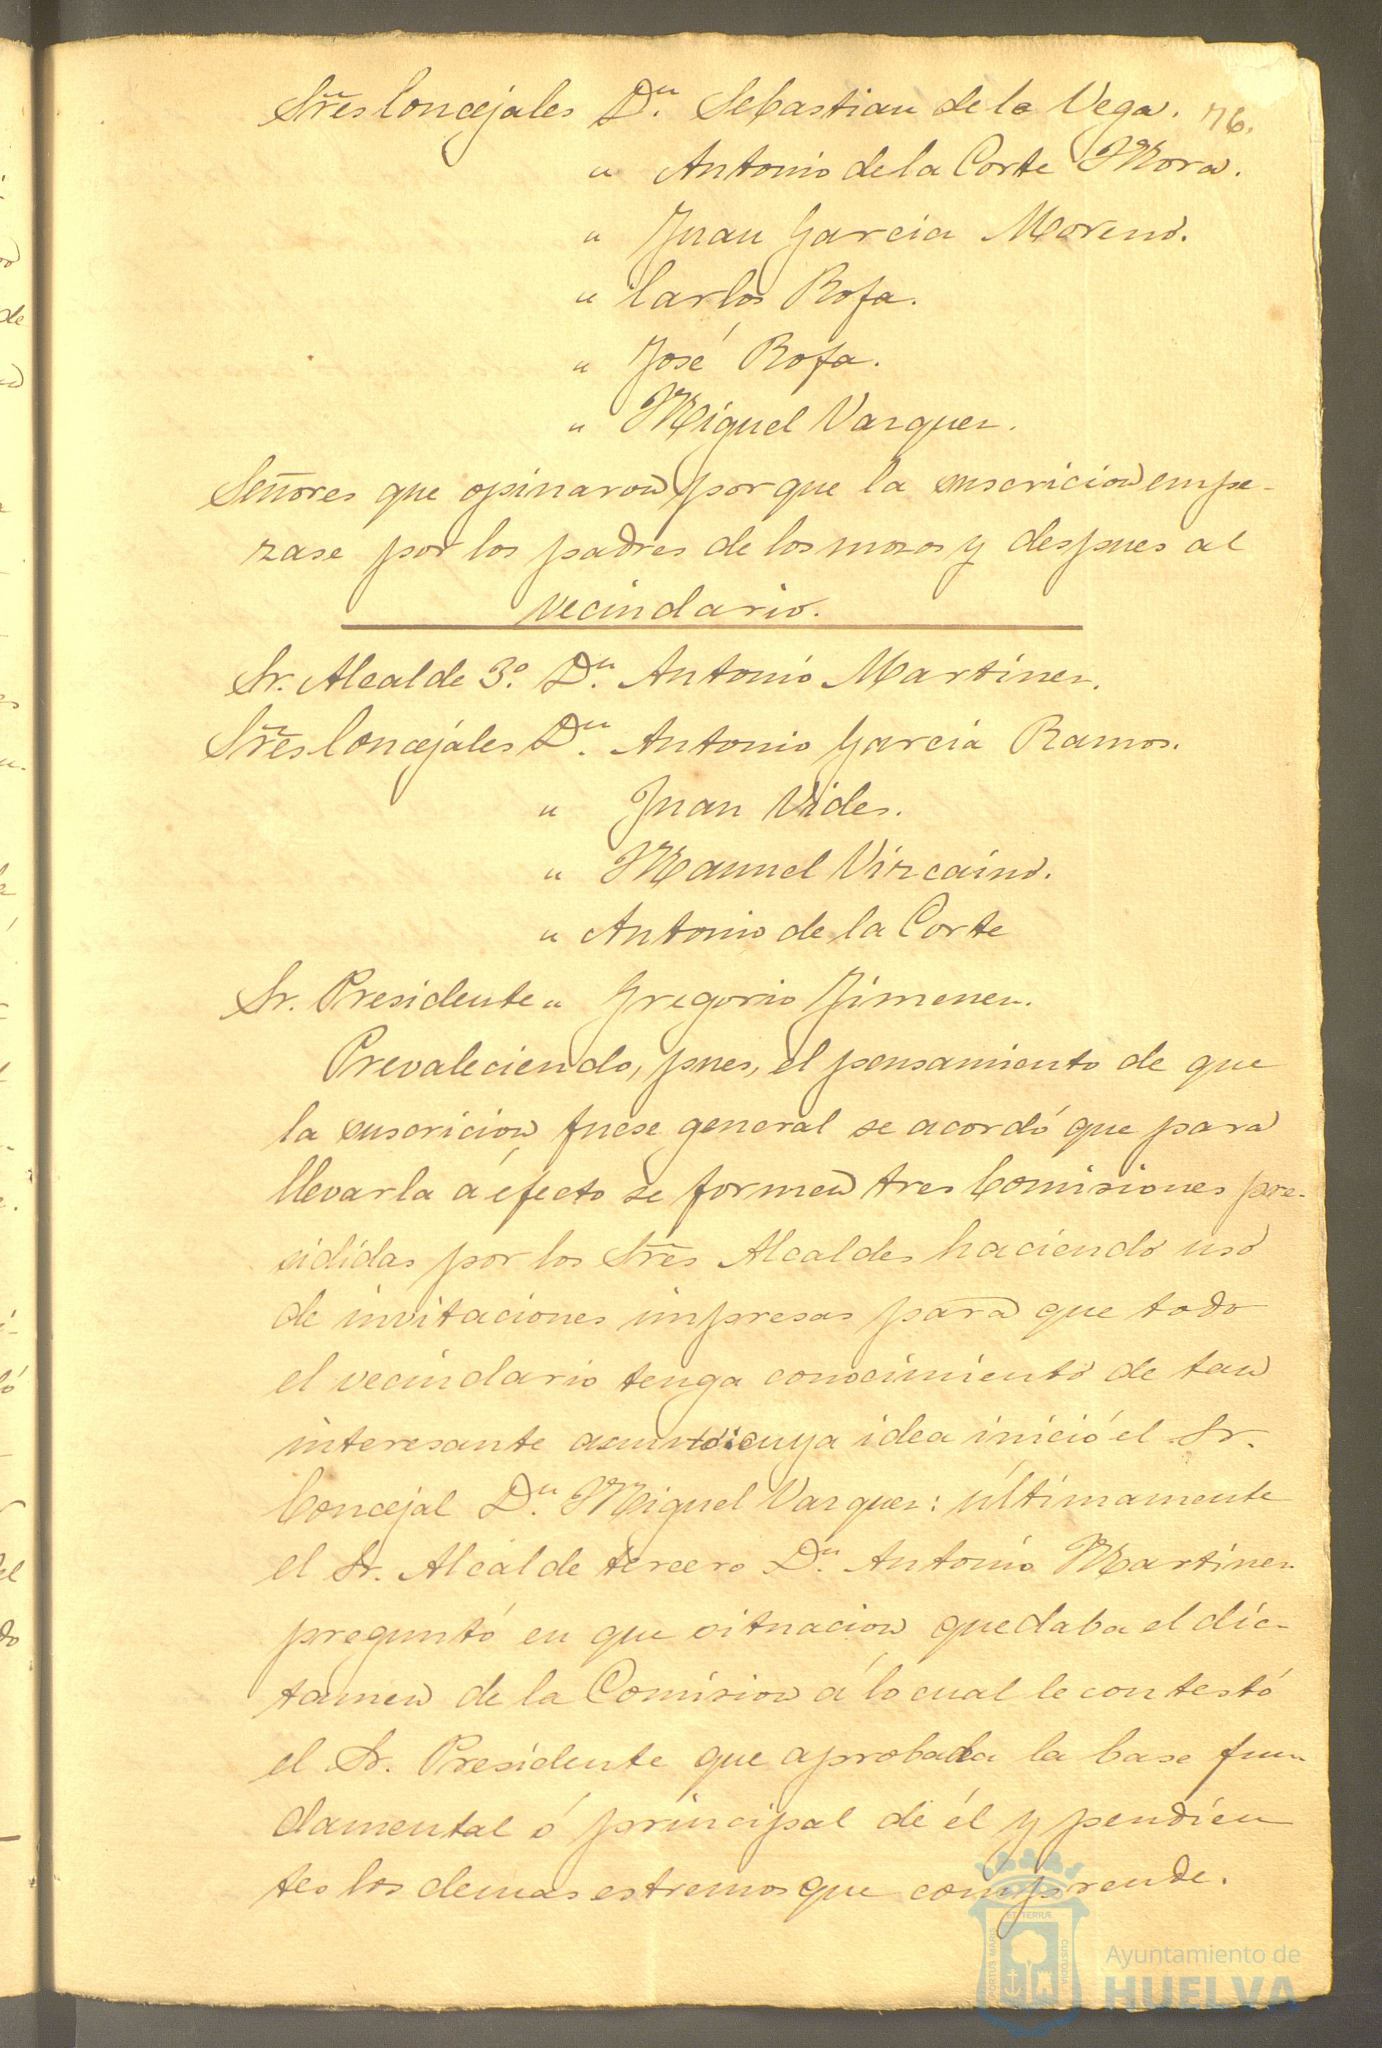 Sres Concejales Dn. Sebastian de la Vega. 76.
" Antonio de la Corte Mora.
" Juan Garcia Moreno.
" Carlos Rofa.
" José Rofa.
" Miguel Vazquez.
Señores que opinaron porque la suscricion empe-
zase por los padres de los mozos y despues al
vecindario.
Sr. Alcalde 3º. Dn. Antonio Martinez.
Sres Concejales Dn. Antonio Garcia Ramos.
" Juan Vides.
" Manuel Vizcaino.
" Antonio de la Corte
Sr. Presidente " Gregorio Jimenez.
Prevaleciendo, pues, el pensamiento de que
la suscricion fuese general se acordó que para
llevarla á efecto se formen tres Comisiones pre-
sididas por los Sres Alcaldes haciendo uso
de invitaciones impresas para que todo
el vecindario tenga conocimiento de tan
interesante asunto: cuya idea inició el Sr.
Concejal Dn. Miguel Vazquez: últimamente
el Sr. Alcalde tercero Dn. Antonio Martinez
preguntó en que situacion quedaba el dic-
tamen de la Comision á lo cual le contestó
el Sr. Presidente que aprobada la base fun-
damental ó principal de él y pendien
tes los demas estremos que comprende.
PORTUS MARIS ET TERRÆ CUSTODIA
Ayuntamiento de
HUELVA